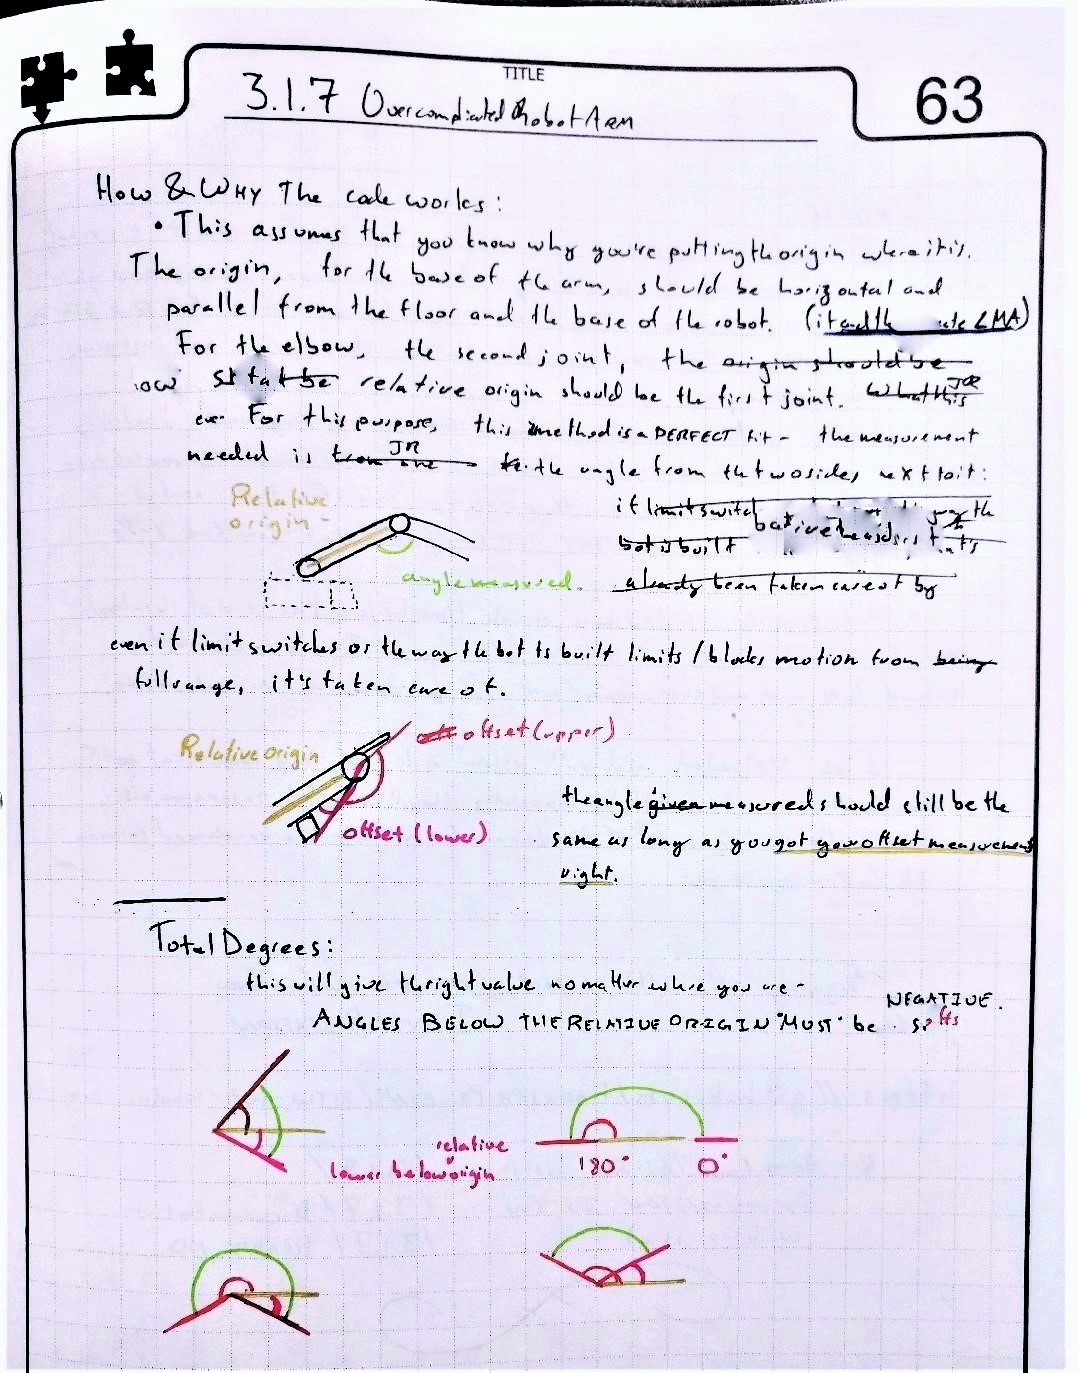 TITLE
3.1.7 Overcomplicated Robot ARM
63
How & WHY The code works:
• This assumes that you know why you're putting the origin where it is.
The origin, for the base of the arm, should be horizontal and
parallel from the floor and the base of the robot. (it and the LMA)
For the elbow, the second joint, the origin should be
relative origin should be the first joint. What this
JR
For this purpose, this method is a PERFECT fit - the measurement
JR
needed is from one the angle from the two sides next to it:
Relative
origin -
angle measured.
if limit switch the
bot is built
already been taken care of by
even if limit switches or the way the bot is built limits / blocks motion from being
full range, it's taken care of.
offset (upper)
Relative origin
offset (lower)
the angle given measured should still be the
same as long as you got your offset measurements
right.
Total Degrees:
this will give the right value no matter where you are -
NEGATIVE.
ANGLES BELOW THE RELATIVE ORIGIN "MUST" be
relative
lower below origin
180° 0°